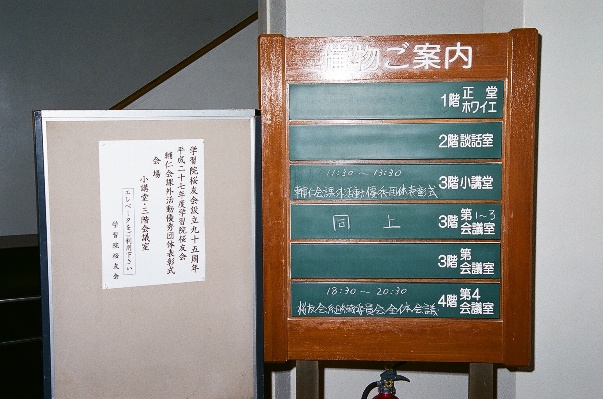 学習院桜友会設立九十五周年
平成二十七年度学習院桜友会
輔仁会課外活動優秀団体表彰式
会場
小講堂・三階会議室
エレベータをご利用下さい
学習院桜友会
催物ご案内
1階 正堂 ホワイエ
2階 談話室
11:30～13:30
輔仁会課外活動優秀団体表彰式
3階 小講堂
同上
3階 第1~3会議室
3階 第 会議室
18:30～20:30
桜友会組織委員会 全体会議
4階 第4会議室